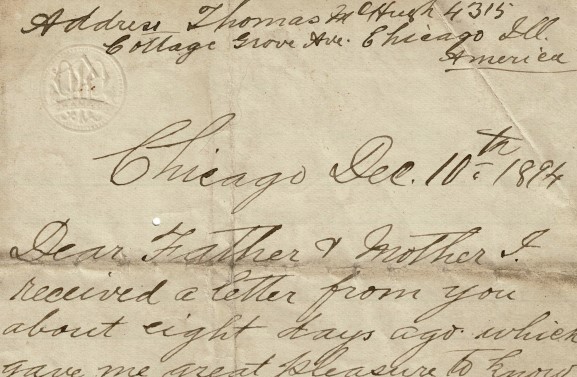 Address Thomas McHugh 4315
Cottage Grove Ave. Chicago Ill.
America
Chicago Dec. 10th 1894
Dear Father & Mother I.
received a letter from you
about eight days ago which
gave me great pleasure to know